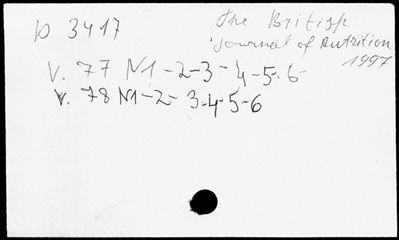 D 3417
The British
Journal of Nutrition
1997
V. 77 N1-2-3-4-5-6
V. 78 N1-2-3-4-5-6